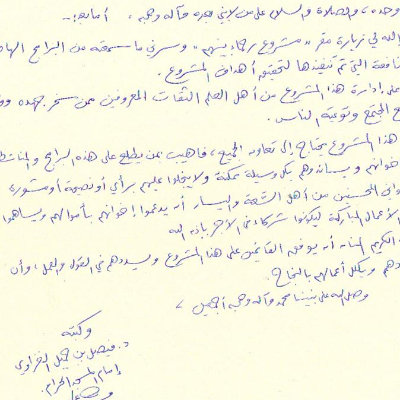 وحده، والصلاة والسلام على من لا نبي بعده وآله وصحبه، أما بعد:-
الله لي زيارة مقر "مشروع رحماء بينهم" وسرني ما سمعته من البرامج الهاد
النافعة التي تم تنفيذها لتحقيق أهداف المشروع.
على إدارة هذا المشروع من أهل العلم الثقات المعروفين ممن سخر جهده وو
المجتمع وتوعية الناس.
هذا المشروع يحتاج إلى تعاون الجميع، فأهيب بمن يطلع على هذه البرامج والمناشط
إخوانهم ويساندوهم بكل وسيلة ممكنة ولا يبخلوا عليهم برأي أو نصيحة أو مشورة
المحسنين من أهل السعة واليسار أن يدعموا إخوانهم بأموالهم ويساهموا
الأعمال المباركة ليكونوا شركاء في الأجر بإذن الله
الكريم المنان أن يوفق القائمين على هذا المشروع ويسددهم في القول والعمل، وأن
ويكلل أعمالهم بالنجاح.
وصلى الله على نبينا محمد وآله وصحبه أجمعين،
وكتبه
د. فيصل بن جميل الغزاوي
إمام المسجد الحرام